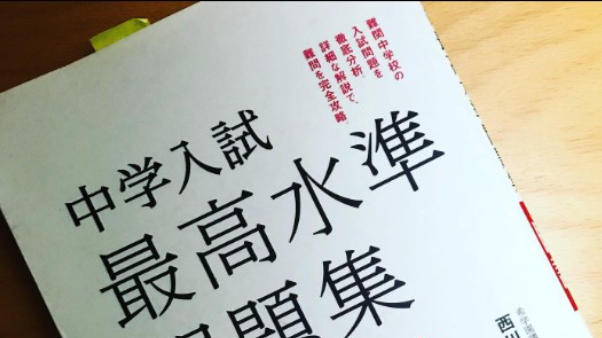 難関中学校の
入試問題を
徹底分析。
詳細な解説で、
難問を完全攻略。
中学入試
最高水準
問題集
希学園
西川